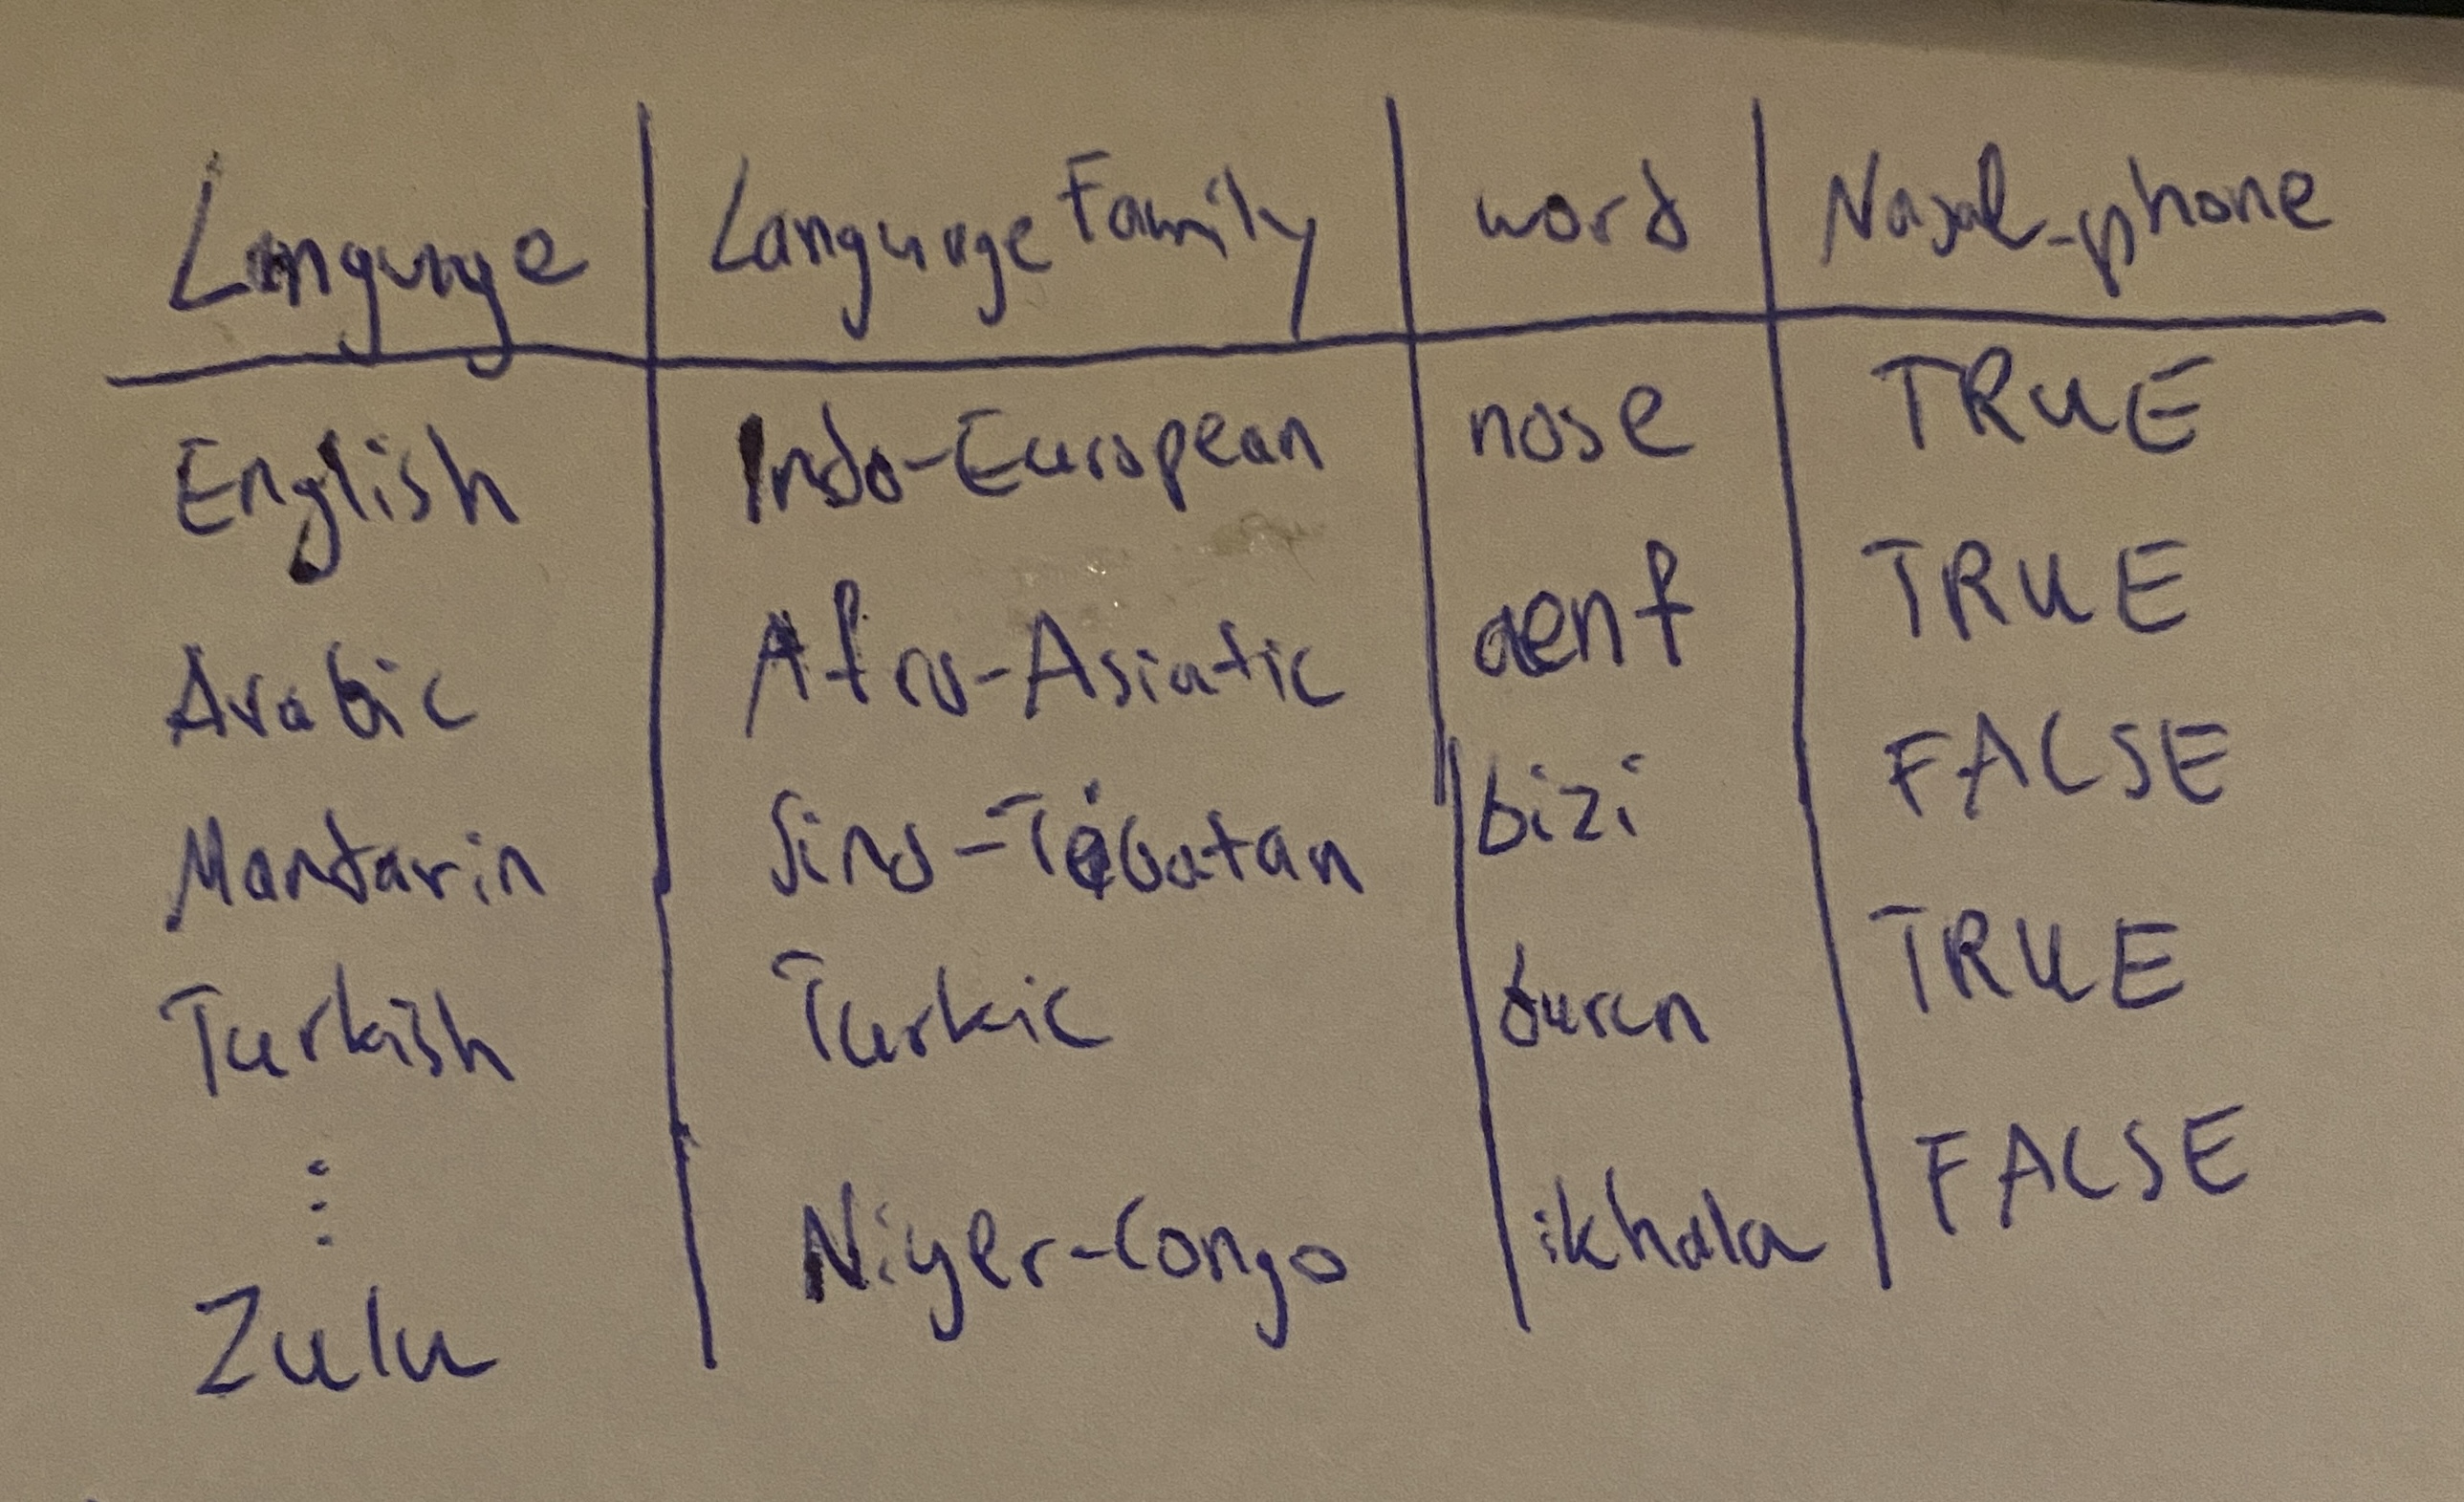 Language Language Family word Nasal-phone
English Indo-European nose TRUE
Arabic Afro-Asiatic aenf TRUE
Mandarin Sino-Tibatan bizi FALSE
Turkish Turkic burcn TRUE
⋮
Zulu Niger-Congo ikhala FALSE